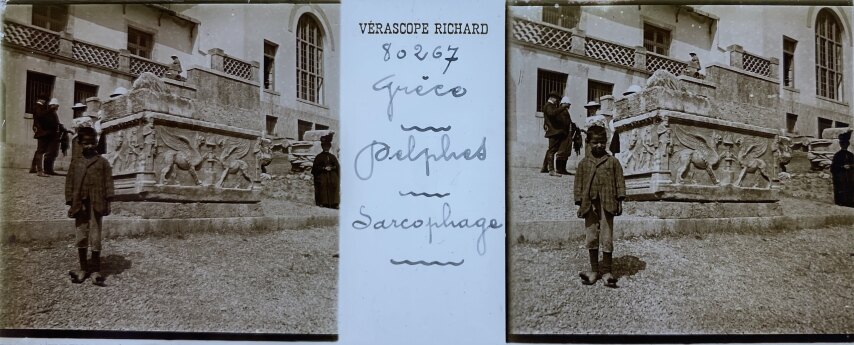 VÉRASCOPE RICHARD
80267
Grèce
Delphes
Sarcophage